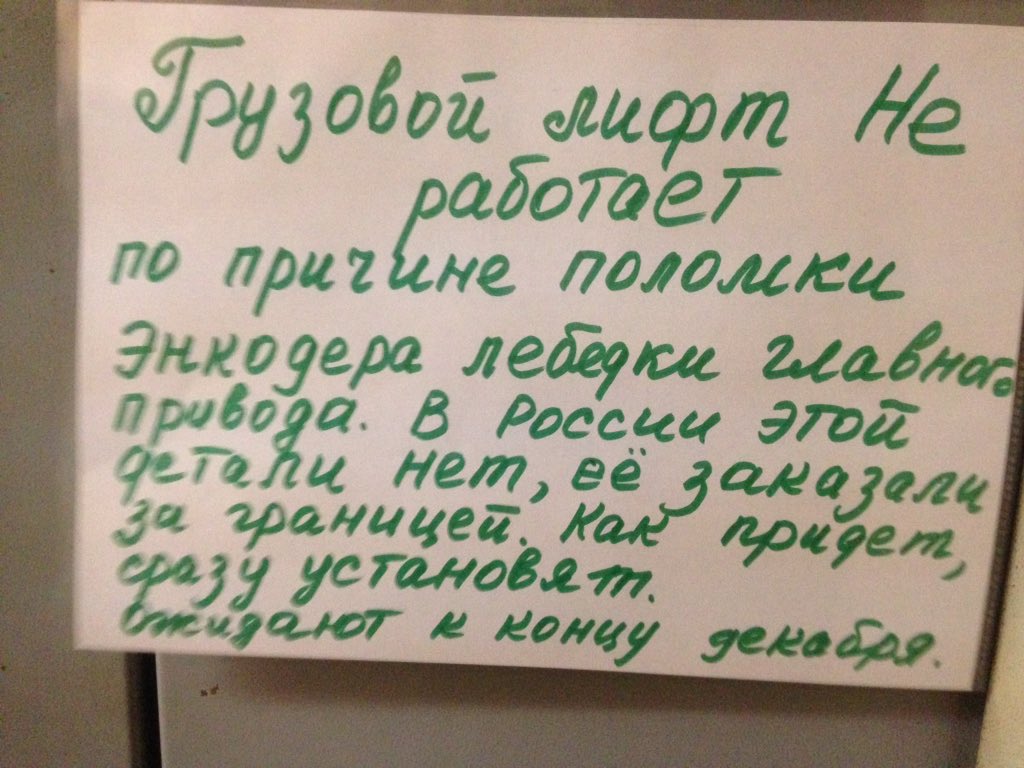 Грузовой лифт Не
работает
по причине поломки
Энкодера лебедки главного
привода. В России этой
детали нет, её заказали
за границей. Как придет,
сразу установят.
Ожидают к концу декабря.